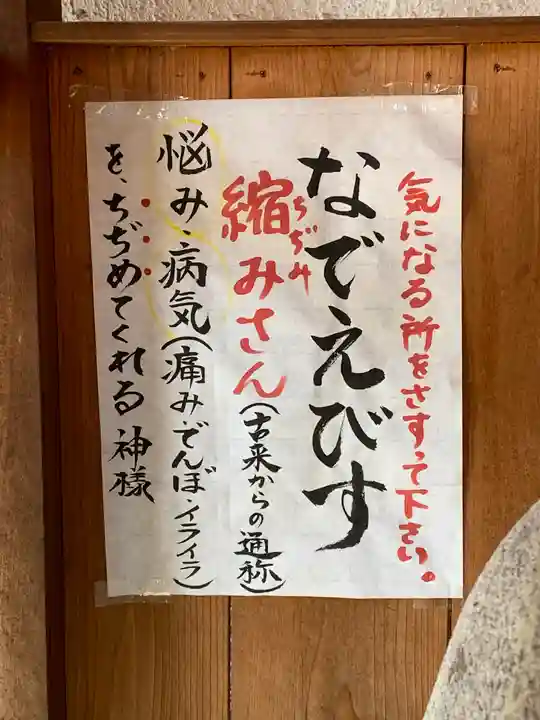 気になる所をさすって下さい。
なでえびす
ちぢみ
縮みさん(古来からの通称)
悩み・病気(痛み・でんぼ・イライラ)
を、ちぢめてくれる神様